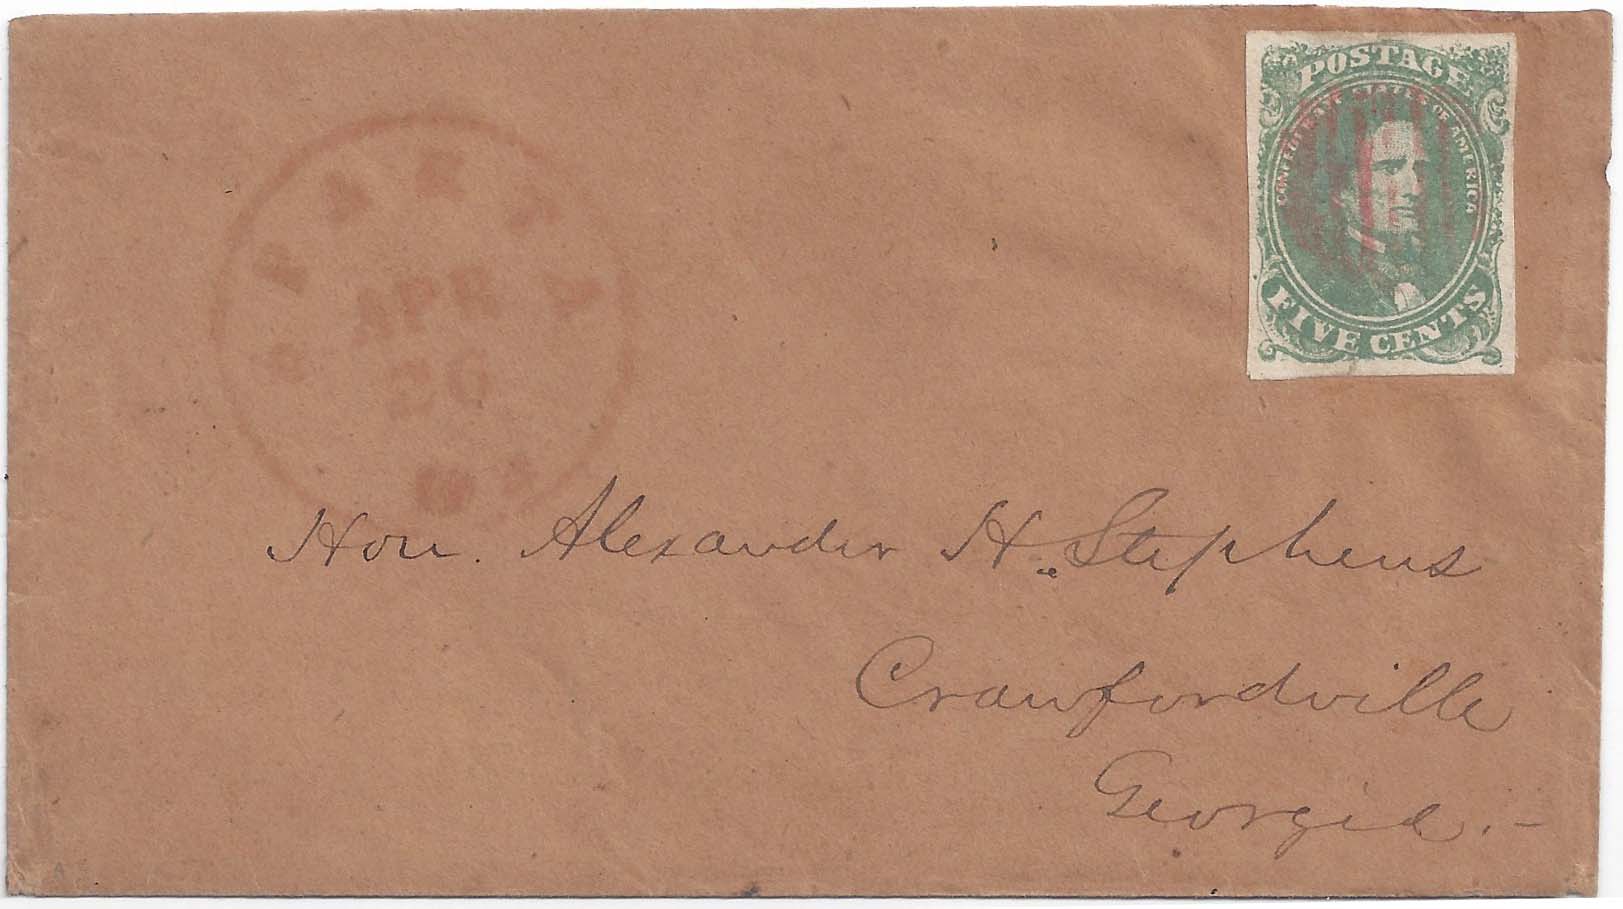 POSTAGE
CONFEDERATE STATES OF AMERICA
FIVE CENTS
APR
26
Hon. Alexander H. Stephens
Crawfordville
Georgia. -